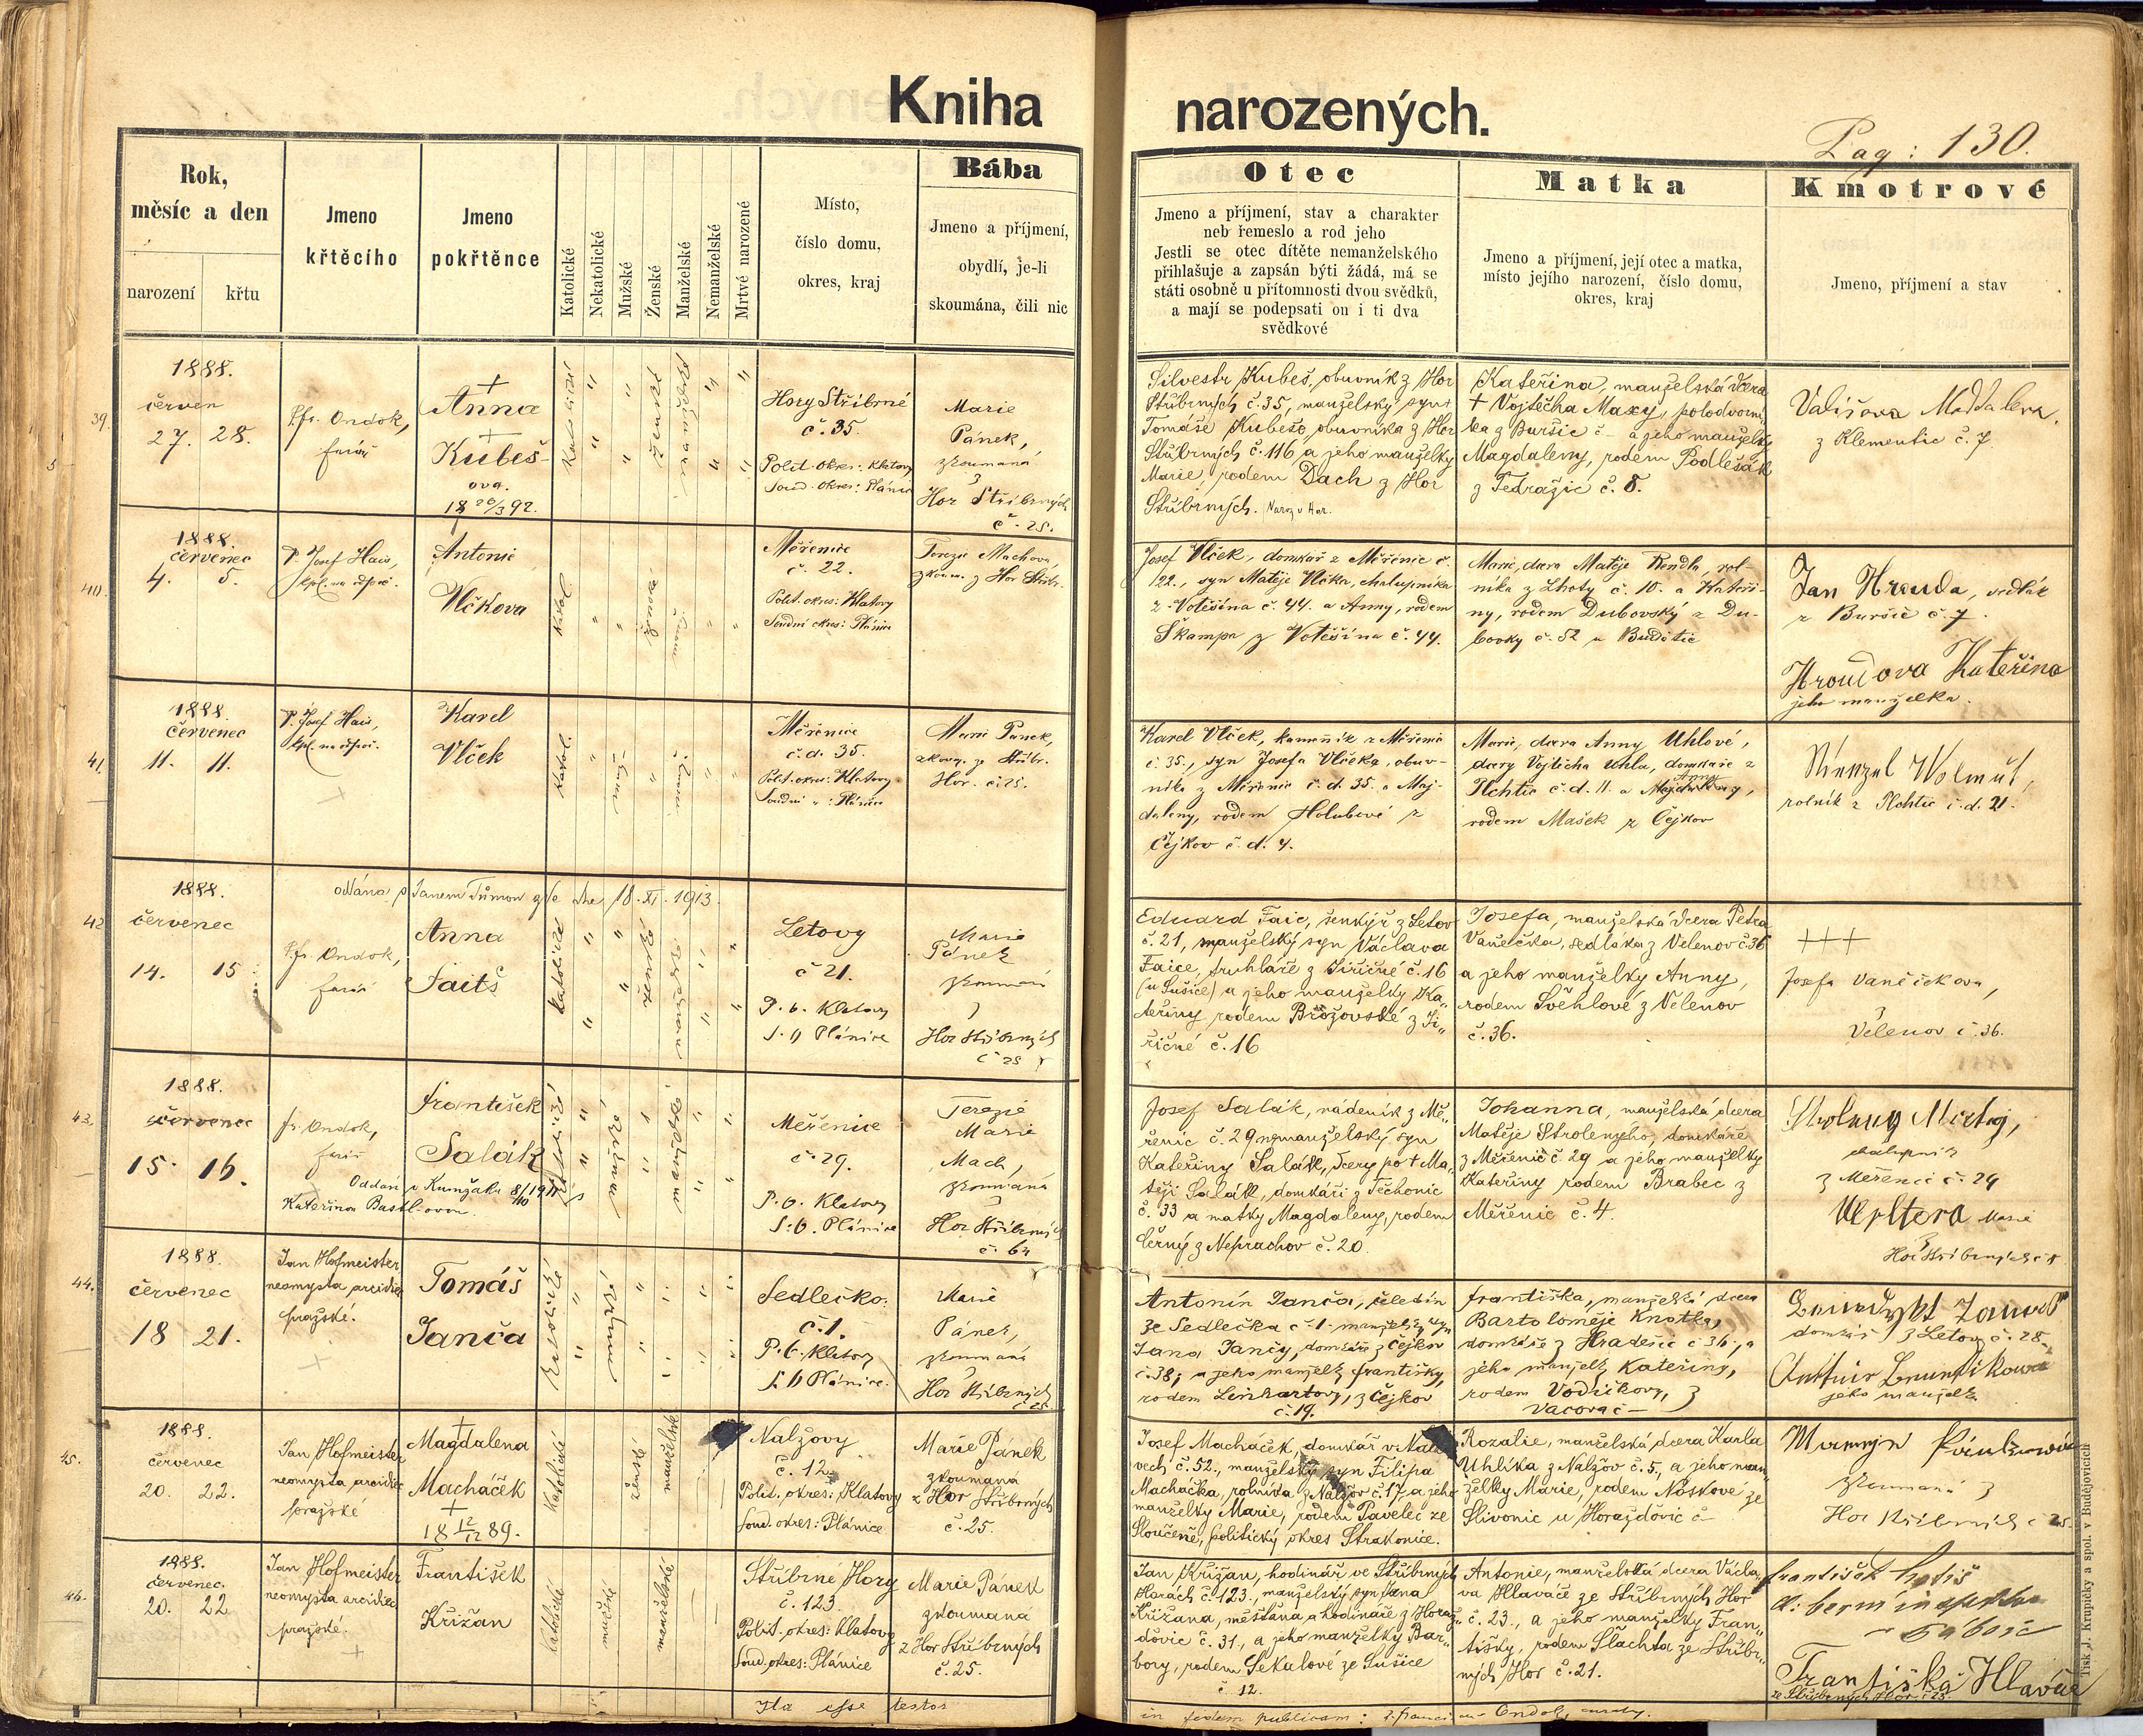 Kniha narozených.
Pag: 130.
Rok,
měsíc a den
narození
křtu
Jmeno
křtěcího
Jmeno
pokřtěnce
Katolické
Nekatolické
Mužské
Ženské
Manželské
Nemanželské
Mrtvé narozené
Místo,
číslo domu,
okres, kraj
Bába
Jmeno a příjmení,
obydlí, je-li
skoumána, čili nic
Otec
Jmeno a příjmení, stav a charakter
neb řemeslo a rod jeho
Jestli se otec dítěte nemanželského
přihlašuje a zapsán býti žádá, má se
státi osobně u přítomnosti dvou svědků,
a mají se podepsati on i ti dva
svědkové
Matka
Jmeno a příjmení, její otec a matka,
místo jejího narození, číslo domu,
okres, kraj
Kmotrové
Jmeno, příjmení a stav
39.
1888.
červen
27. 28.
Ondok,
farář
Anna
Kubeš-
ova.
18 20/3 92.
Hory Stříbrné
č. 35.
Polit. okres: Klatovy
Soud. okres: Plánice
Marie
Pánek,
zkoumaná
z
Hor Stříbrných
č. 25.
Silvestr Kubeš, obuvník z Hor
Stříbrných č. 35, manželský syn
Tomáše Kubeše, obuvníka z Hor
Stříbrných č. 116 a jeho manželky
Marie, rodem Dach z Hor
Stříbrných.
Kateřina, manželská dcera
+ Vojtěcha Maxy, polodvorní-
ka z Buršic č – a jeho manželky
Magdaleny, rodem Podlešák
z Tedražic č. 8.
Vališova Maddalena
z Klementic č. 7
40.
1888.
červenec
4. 5.
P. Josef Hais,
Antonie
Vlčkova
Katol.
Měřenice
č. 22.
Polit. okres: Klatovy
Soudní okres: Plánice
Terezie Machova,
zkoum. z Hor Stříbr.
Josef Vlček, domkář z Měřenic č.
22., syn Matěje Vlčka, chalupníka
z Votěšína č. 44. a Anny, rodem
Škampa z Votěšína č. 44.
Marie, dcera Matěje Rendla, rol-
níka z Lhoty č. 10. a Kateři-
ny, rodem Dubovský z Du-
bovky č. 52 u Budětic
Jan Hrouda, sedlák
z Buršic č. 7.
Hroudova Kateřina
jeho manželka.
41.
1888.
červenec
11. 11.
P. Josef Hais,
Karel
Vlček
Katol.
Měřenice
č. d. 35.
Polit. okres: Klatovy
Soudní " : Plánice
Marie Pánek,
zkoum. ze Stříbr.
Hor. č. 25.
Karel Vlček, kameník z Měřenic
č. 35., syn Josefa Vlčeka, obuv-
níka z Měřenic č. d. 35. a Maj-
daleny, rodem Holubové z
Čejkov č. d. 4.
Marie, dcera Anny Uhlové,
dcery Vojtěcha Uhla, domkáře z
Plchtic č. d. 11. a Anny
rodem Mašek z Čejkov
rolník z Plchtic č. d. 21.
42
1888.
oddána s Janem Tůmou dne 18. XI. 1913.
červenec
14. 15
Ondok,
farář
Anna
Faitš
katolické
ženské
Letovy
č 21.
P. o. Klatovy
S. " Plánice
Marie
Pánek
zkoumaná
z
Hor Stříbrných
č 25
Eduard Faic, šenkýř z Letov
č. 21, manželský syn Václava
Faice, truhláře z Jiřičné č. 16
(u Sušice) a jeho manželky Ka-
teřiny rodem Brožovské z Ji-
řičné č. 16
Josefa, manželská dcera Petra
Vaněčka, sedláka z Velenov č. 36
a jeho manželky Anny,
rodem Švehlové z Velenov
č. 36.
+++
Josefa Vaněčkova,
z
Velenov č. 36.
43.
1888.
červenec
15. 16.
fr. Ondok,
farář
František
Salák
Kateřinou
Měřenice
č. 29.
P. O. Klatovy
S. O. Plánice
Terezie
Marie
Mach,
zkoumaná
z
Hor Stříbrných
č. 64
Josef Salák, nádeník z Mě-
řenic č. 29 nemanželský syn
Kateřiny Salák, dcery po + Ma-
těji Salák, domkáři z Těchonic
č. 33 a matky Magdaleny, rodem
Černý z Neprachov č. 20.
Johanna, manželská dcera
Matěje Strolenýho, domkáře
z Měřenic č. 29 a jeho manželky
Kateřiny rodem Brabec z
Měřenic č. 4.
z Měřenic č. 29
Marie
44.
1888.
červenec
18 21.
Jan Hofmeister
neomysta arcidiec.
pražské.
Tomáš
Janča
Katolické
Sedlečko.
č. 1.
P. O. Klatovy
S. O Plánice.
Marie
Pánek,
zkoumaná
z
Hor Stříbrných
č 25.
Antonín Janča, čeledín
ze Sedlečka č 1. manželský syn
Jana Janči, domkáře z Čejkov
č. 38; a jeho manželky Františky,
rodem Linhartovy, z Čejkov
č. 19.
Františka, manželská dcera
Bartoloměje Knotka,
domkáře z Hradešic č 36; a
jeho manželky Kateřiny,
rodem Vodičkovy, z
Vacova č –
domkář z Letov č. 28
jeho manželka
45.
1888.
červenec
20. 22.
Jan Hofmeister
neomysta arcidiec.
pražské
Magdalena
Macháček
18 12/12 89.
Katolické
ženské
manželské
Nalžovy
č. 12.
Polit. okres: Klatovy
Soud. okres: Plánice
Marie Pánek
zkoumaná
z Hor Stříbrných
č. 25.
Josef Macháček, domkář v Nalžo-
vech č. 52., manželský syn Filipa
Macháčka, rolníka z Nalžov č. 17. a jeho
manželky Marie, rodem Pavelec ze
Sloučeně, politický okres Strakonice.
Rozalie, manželská dcera Karla
Uhlíka z Nalžov č. 5., a jeho man-
želky Marie, rodem Noskové ze
Slivonic u Horažďovic č –
zkoumaná z
Hor Stříbrných č 25.
46.
1888.
červenec.
20. 22
Jan Hofmeister
neomysta arcidiec.
pražské.
František
Křižan
Katolické
mužské
manželské
Stříbrné Hory
č. 123
Polit. okres: Klatovy
Soud. okres: Plánice
Marie Pánek
zkoumaná
z Hor Stříbrných
č. 25.
Jan Křižan, hodinář ve Stříbrných
Horách č. 123., manželský syn Jana
Křižana, měšťana a hodináře z Horaž-
ďovic č. 31., a jeho manželky Bar-
bory, rodem Sekulové ze Sušice
č. 12.
Antonie, manželská dcera Václa-
va Hlaváče ze Stříbrných Hor
č. 23., a jeho manželky Fran-
tišky, rodem Šlachta ze Stříbr-
ných Hor č. 21.
František
Františka Hlaváč
ze Stříbrných Hor č 23.
Ita esse testor
in fidem publicam: Ondok,
Tisk J. Krupičky a spol. v Budějovicích